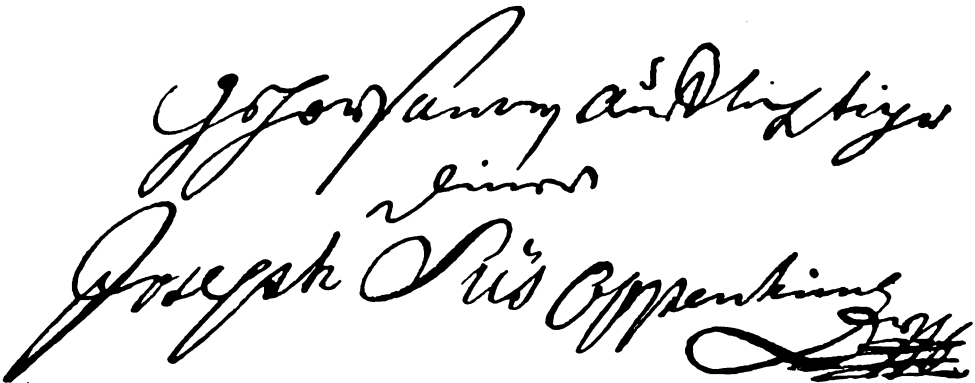 gehorsamer aufrichtiger
Diener
Joseph Süs Oppenheimer